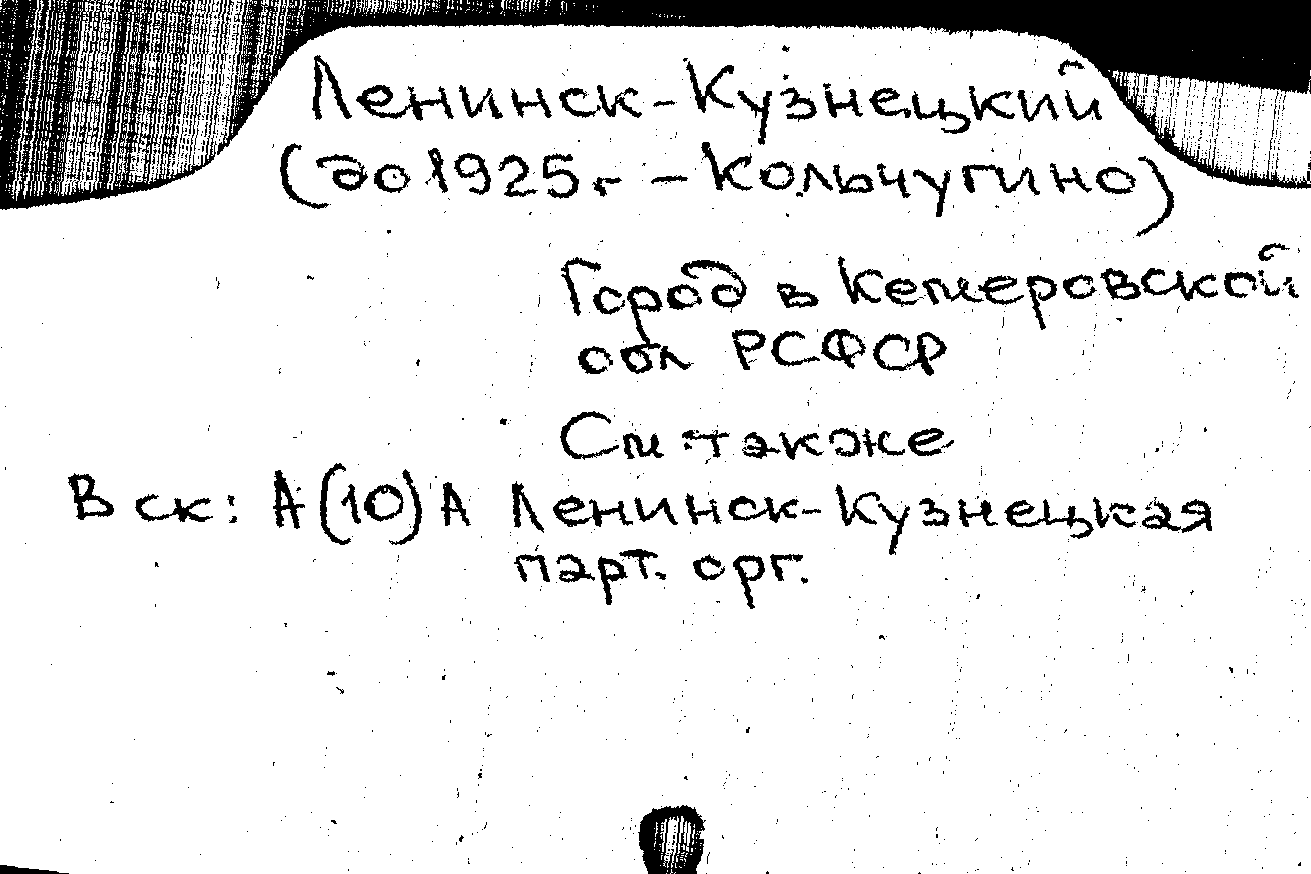 Ленинск-Кузнецкий
(до 1925 г. - Кольчугино)
Город в Кемеровской
обл РСФСР
См. также
В ск: А(10)А Ленинск-Кузнецкая
парт. орг.